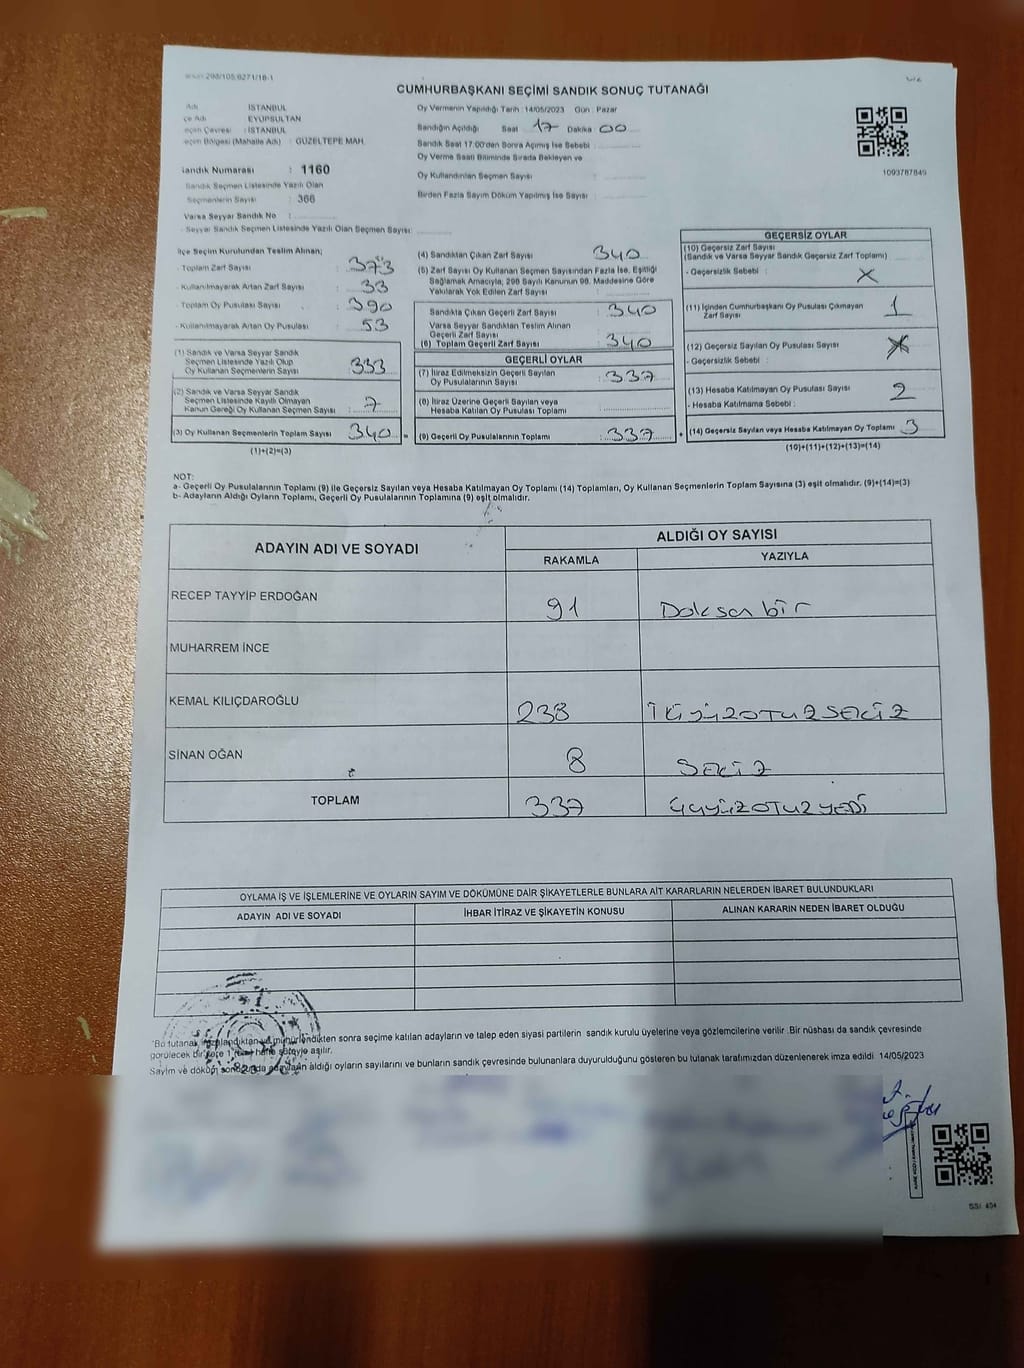 298/105/6271/18-1
CUMHURBAŞKANI SEÇİMİ SANDIK SONUÇ TUTANAĞI
Adı : İSTANBUL
çe Adı : EYÜPSULTAN
eçim Çevresi : İSTANBUL
eçim Bölgesi (Mahalle Adı) : GÜZELTEPE MAH.
Oy Vermenin Yapıldığı Tarih :14/05/2023 Gün : Pazar
Sandığın Açıldığı Saat 17 Dakika 00
Sandık Saat 17:00'den Sonra Açılmış İse Sebebi :
Oy Verme Saati Bitiminde Sırada Bekleyen ve
Oy Kullandırılan Seçmen Sayısı :
Birden Fazla Sayım Döküm Yapılmış İse Sayısı :
1093787849
andık Numarası : 1160
Sandık Seçmen Listesinde Yazılı Olan
Seçmenlerin Sayısı : 366
Varsa Seyyar Sandık No :
- Seyyar Sandık Seçmen Listesinde Yazılı Olan Seçmen Sayısı:
İlçe Seçim Kurulundan Teslim Alınan;
- Toplam Zarf Sayısı : 373
- Kullanılmayarak Artan Zarf Sayısı : 33
Toplam Oy Pusulası Sayısı : 390
- Kullanılmayarak Artan Oy Pusulası : 53
(1) Sandık ve Varsa Seyyar Sandık
Seçmen Listesinde Yazılı Olup
Oy Kullanan Seçmenlerin Sayısı : 333
(2) Sandık ve Varsa Seyyar Sandık
Seçmen Listesinde Kayıtlı Olmayan
Kanun Gereği Oy Kullanan Seçmen Sayısı : 7
(3) Oy Kullanan Seçmenlerin Toplam Sayısı : 340 =
(1)+(2)=(3)
(4) Sandıktan Çıkan Zarf Sayısı : 340
(5) Zarf Sayısı Oy Kullanan Seçmen Sayısından Fazla İse, Eşitliği
Sağlamak Amacıyla, 298 Sayılı Kanunun 98. Maddesine Göre
Yakılarak Yok Edilen Zarf Sayısı :
Sandıkta Çıkan Geçerli Zarf Sayısı : 340
Varsa Seyyar Sandıktan Teslim Alınan
Geçerli Zarf Sayısı :
(6) Toplam Geçerli Zarf Sayısı : 340
GEÇERLİ OYLAR
(7) İtiraz Edilmeksizin Geçerli Sayılan
Oy Pusulalarının Sayısı : 337
(8) İtiraz Üzerine Geçerli Sayılan veya
Hesaba Katılan Oy Pusulası Toplamı :
(9) Geçerli Oy Pusulalarının Toplamı : 337 +
GEÇERSİZ OYLAR
(10) Geçersiz Zarf Sayısı
(Sandık ve Varsa Seyyar Sandık Geçersiz Zarf Toplamı)
- Geçersizlik Sebebi : X
(11) İçinden Cumhurbaşkanı Oy Pusulası Çıkmayan
Zarf Sayısı : 1
(12) Geçersiz Sayılan Oy Pusulası Sayısı :
- Geçersizlik Sebebi :
(13) Hesaba Katılmayan Oy Pusulası Sayısı : 2
- Hesaba Katılmama Sebebi :
(14) Geçersiz Sayılan veya Hesaba Katılmayan Oy Toplamı : 3
(10)+(11)+(12)+(13)=(14)
NOT:
a- Geçerli Oy Pusulalarının Toplamı (9) ile Geçersiz Sayılan veya Hesaba Katılmayan Oy Toplamı (14) Toplamları, Oy Kullanan Seçmenlerin Toplam Sayısına (3) eşit olmalıdır. (9)+(14)=(3)
b- Adayların Aldığı Oyların Toplamı, Geçerli Oy Pusulalarının Toplamına (9) eşit olmalıdır.
ADAYIN ADI VE SOYADI ALDIĞI OY SAYISI
RAKAMLA YAZIYLA
RECEP TAYYİP ERDOĞAN 91 Doksan bir
MUHARREM İNCE
KEMAL KILIÇDAROĞLU 238 İKİYÜZOTUZSEKİZ
SİNAN OĞAN 8 SEKİZ
TOPLAM 337 ÜÇYÜZOTUZYEDİ
OYLAMA İŞ VE İŞLEMLERİNE VE OYLARIN SAYIM VE DÖKÜMÜNE DAİR ŞİKAYETLERLE BUNLARA AİT KARARLARIN NELERDEN İBARET BULUNDUKLARI
ADAYIN ADI VE SOYADI İHBAR İTİRAZ VE ŞİKAYETİN KONUSU ALINAN KARARIN NEDEN İBARET OLDUĞU
"Bu tutanak imzalandıktan ve mühürlendikten sonra seçime katılan adayların ve talep eden siyasi partilerin sandık kurulu üyelerine veya gözlemcilerine verilir .Bir nüshası da sandık çevresinde
görülecek bir yere 1 hafta süreyle asılır.
Sayım ve döküm sonucunda adayların aldığı oyların sayılarını ve bunların sandık çevresinde bulunanlara duyurulduğunu gösteren bu tutanak tarafımızdan düzenlenerek imza edildi. 14/05/2023